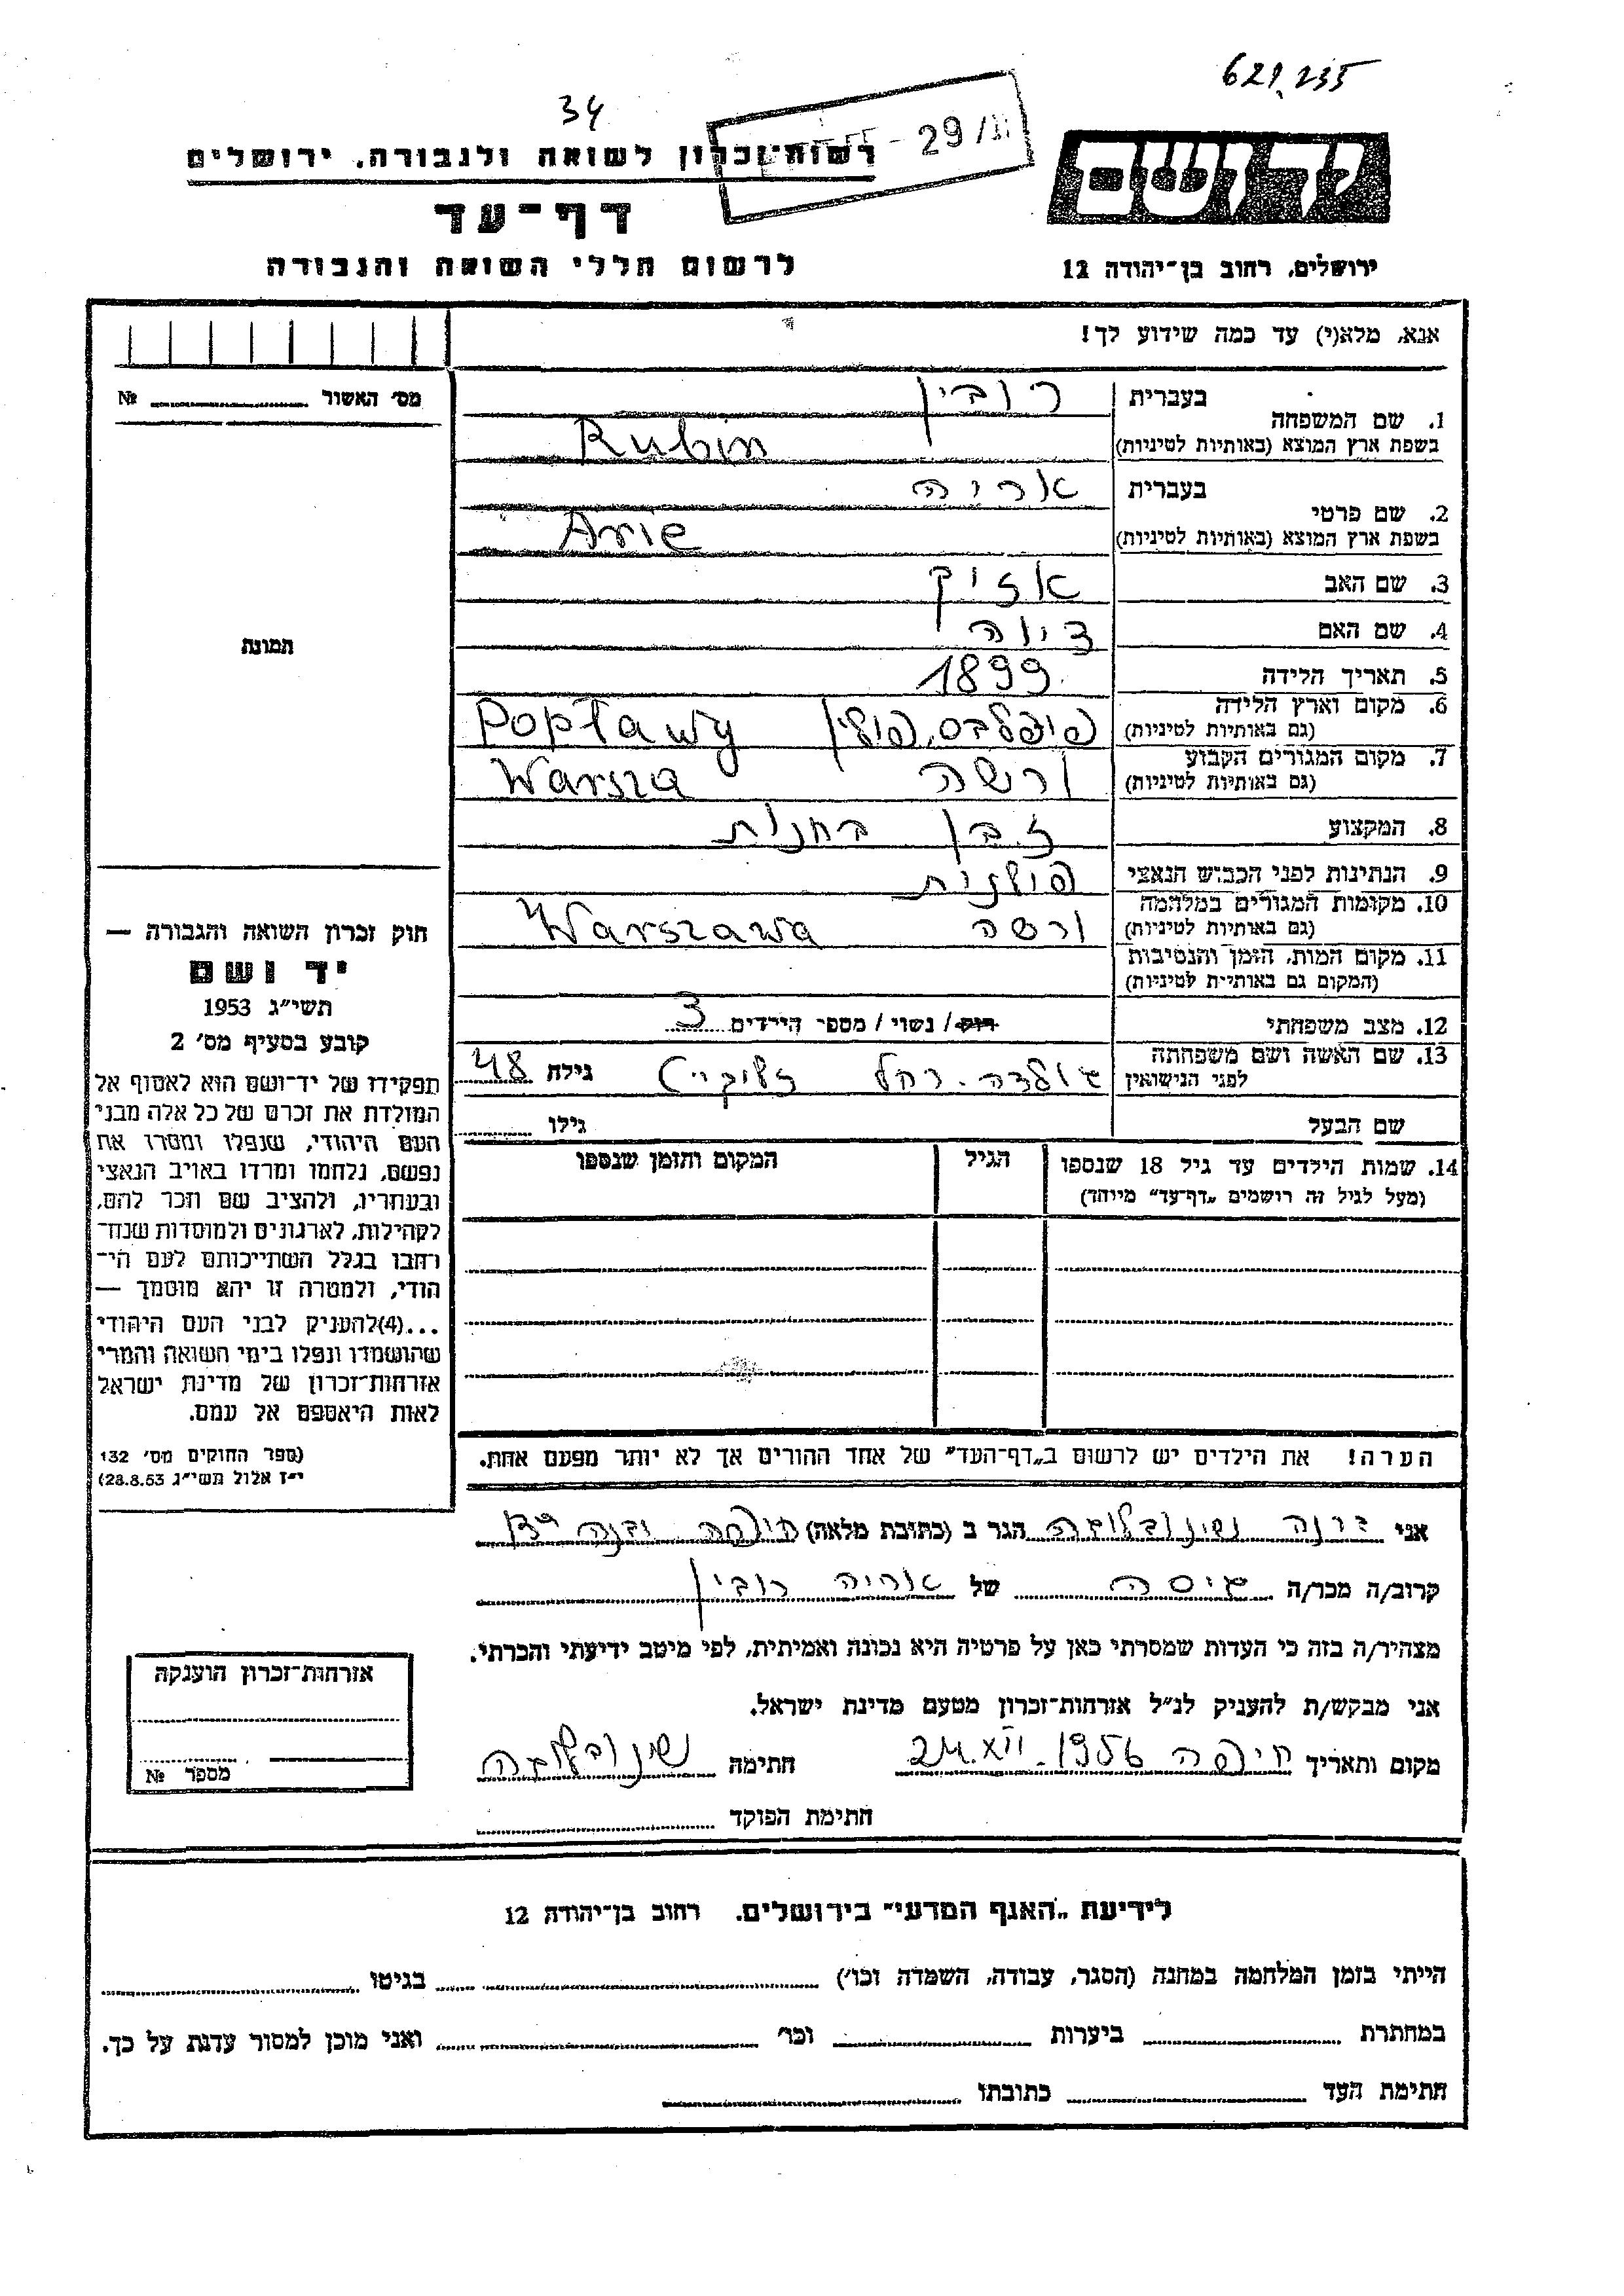 621.235
34
29/
רשות-זכרון לשואה ולגבורה, ירושלים
דף-עד
לרשום חללי השואה והגבורה
יד ושם
ירושלים, רחוב בן-יהודה 12
אנא, מלא(י) עד כמה שידוע לך!
מס׳ האשור № 
1. שם המשפחה
בעברית רובין
בשפת ארץ המוצא (באותיות לטיניות) Rubin
2. שם פרטי
בעברית אריה
בשפת ארץ המוצא (באותיות לטיניות) Arie
3. שם האב איזיק
4. שם האם ציווה
5. תאריך הלידה 1899
6. מקום וארץ הלידה
(גם באותיות לטיניות) פופלבס, פולין Popławy
7. מקום המגורים הקבוע
(גם באותיות לטיניות) ורשה Warsza
8. המקצוע זבן בחנות
9. הנתינות לפני הכבוש הנאצי פולנית
10. מקומות המגורים במלחמה
(גם באותיות לטיניות) ורשה Warszawa
11. מקום המות, הזמן והנסיבות
(המקום גם באותיות לטיניות)
12. מצב משפחתי רווק / נשוי / מספר הילדים 3
13. שם האשה ושם משפחתה
לפני הנישואין גולדה-רחל גילה 48
שם הבעל גילו
14. שמות הילדים עד גיל 18 שנספו
(מעל לגיל זה רושמים „דף-עד״ מיוחד)
הגיל
המקום והזמן שנספו
הערה! את הילדים יש לרשום ב„דף-העד״ של אחד ההורים אך לא יותר מפעם אחת.
תמונה
חוק זכרון השואה והגבורה —
יד ושם
תשי״ג 1953
קובע בסעיף מס׳ 2
תפקידו של יד-ושם הוא לאסוף אל
המולדת את זכרם של כל אלה מבני
העם היהודי, שנפלו ומסרו את
נפשם, נלחמו ומרדו באויב הנאצי
ובעוזריו, ולהציב שם וזכר להם,
לקהילות, לארגונים ולמוסדות שנח-
רחבו בגלל השתייכותם לעם הי-
הודי, ולמטרה זו יהא מוסמך —
...(4)להעניק לבני העם היהודי
שהושמדו ונפלו בימי השואה והמרי
אזרחות-זכרון של מדינת ישראל
לאות היאספם אל עמם.
(ספר החוקים מס׳ 132
י״ז אלול תשי״ג 28.8.53)
אני הגר ב (כתובת מלאה) חיפה
קרוב/ה מכר/ה גיסה של אריה רובין
מצהיר/ה בזה כי העדות שמסרתי כאן על פרטיה היא נכונה ואמיתית, לפי מיטב ידיעתי והכרתי.
אני מבקש/ת להעניק לנ״ל אזרחות-זכרון מטעם מדינת ישראל.
מקום ותאריך חיפה 24.XII.1956 חתימה
חתימת הפוקד
אזרחות-זכרון הוענקה
מספר №
לידיעת „האגף המדעי״ בירושלים. רחוב בן-יהודה 12
הייתי בזמן המלחמה במחנה (הסגר, עבודה, השמדה וכו׳) בגיטו
במחתרת ביערות וכו׳ ואני מוכן למסור עדות על כך.
חתימת העד כתובתו